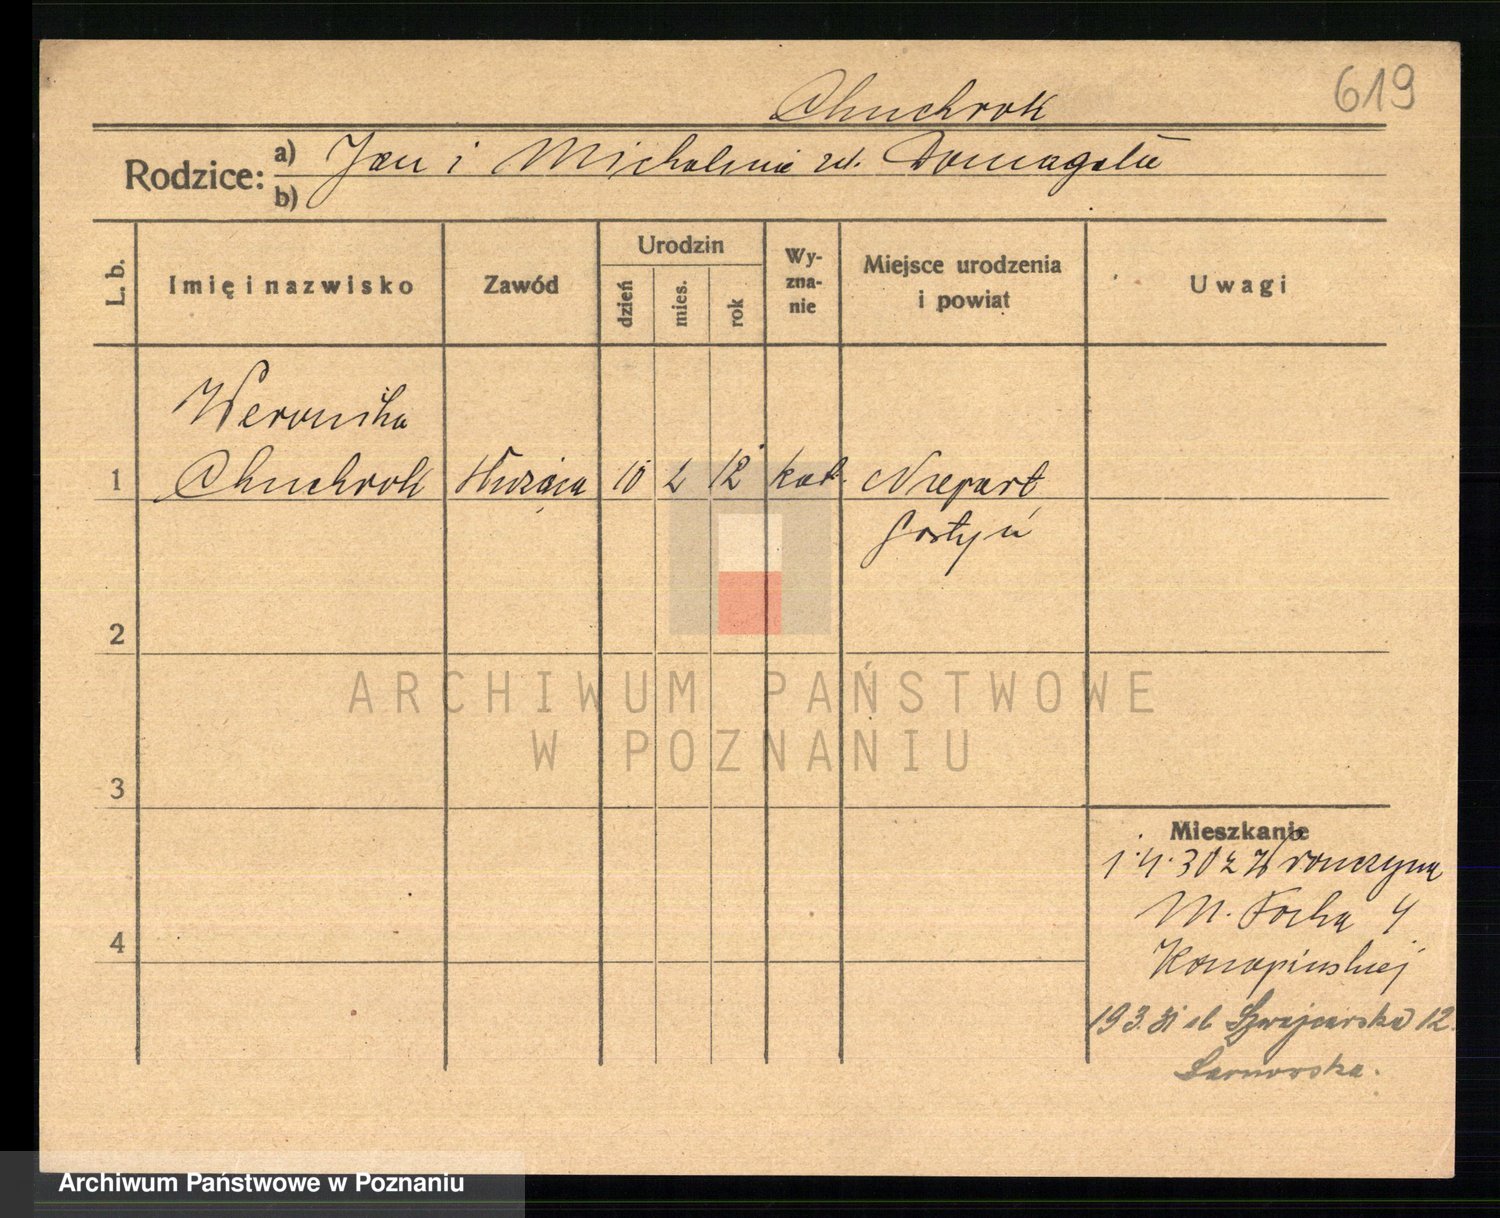 619
Chuchrok
Rodzice: a) Jan i Michalina zd. Domagała
b)
L. b.
Imię i nazwisko
Zawód
Urodzin
dzień
mies.
rok
Wy-
zna-
nie
Miejsce urodzenia
i powiat
Uwagi
Weronika
1 Chuchrok służąca 10 2 12 kat. Niepart
Gostyń
2
3
4
Mieszkanie
1.4.30 z Wronczyna
M. Focha 4
Konopińskiej
19 3. 31 Szwajcarska 12
Sarnowska.
ARCHIWUM PAŃSTWOWE
W POZNANIU
Archiwum Państwowe w Poznaniu